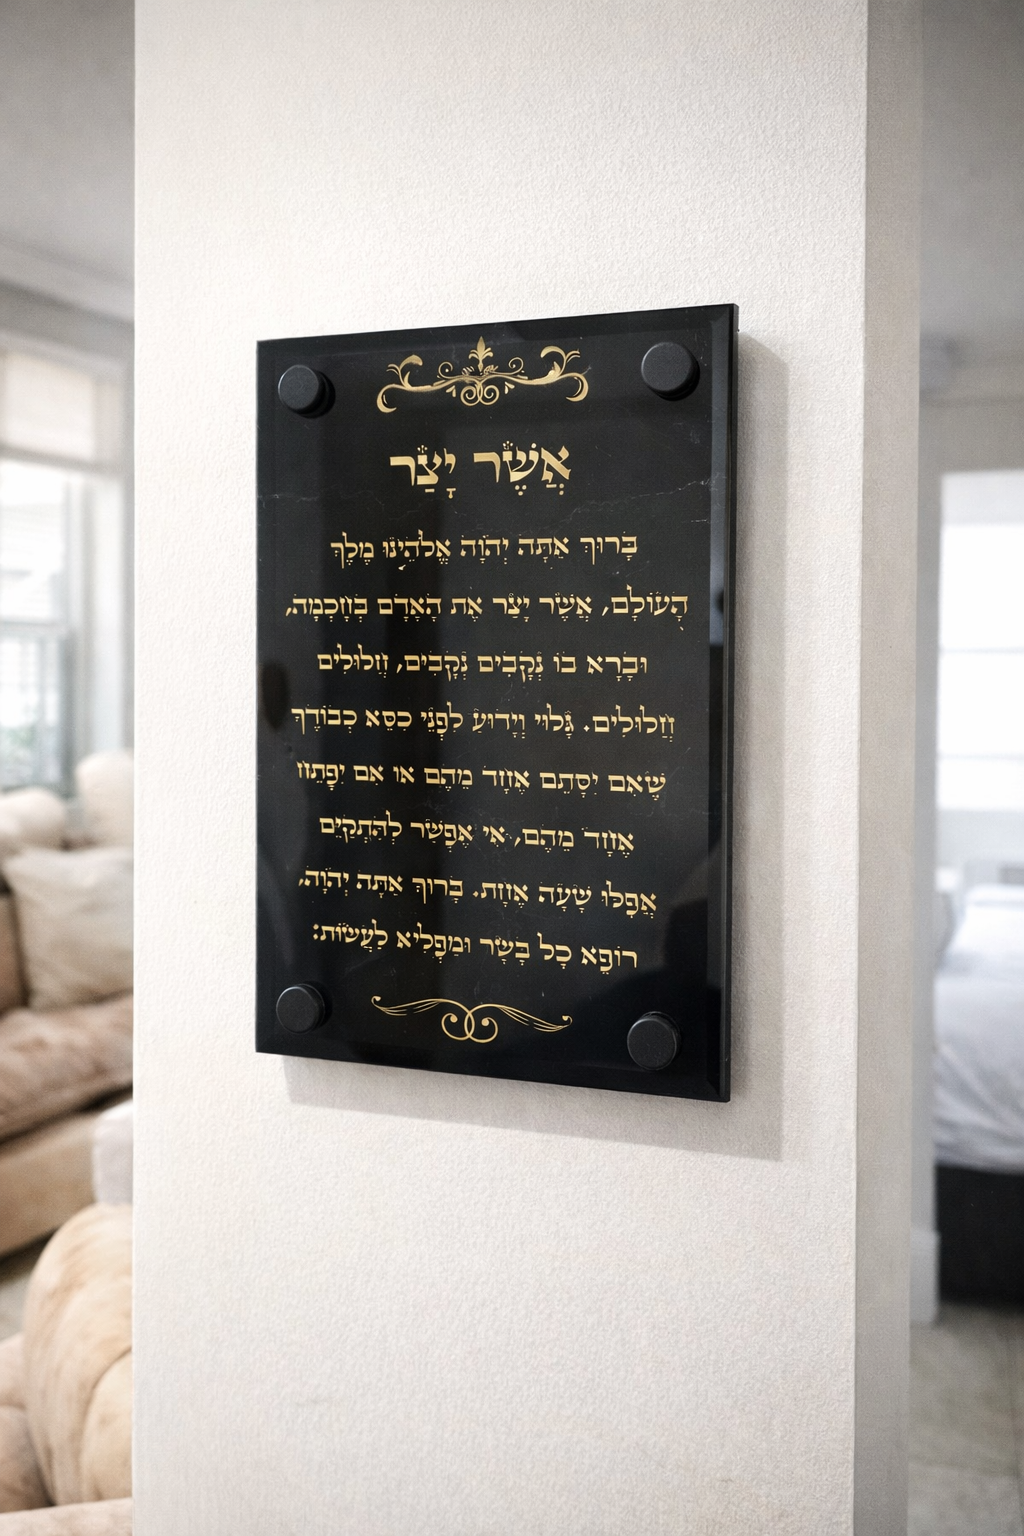 אֲשֶׁר יָצַר
בָּרוּךְ אַתָּה יְהֹוָה אֱלֹהֵינוּ מֶלֶךְ
הָעוֹלָם, אֲשֶׁר יָצַר אֶת הָאָדָם בְּחָכְמָה,
וּבָרָא בוֹ נְקָבִים נְקָבִים, חֲלוּלִים
חֲלוּלִים. גָּלוּי וְיָדוּעַ לִפְנֵי כִסֵּא כְבוֹדֶךָ
שֶׁאִם יִסָּתֵם אֶחָד מֵהֶם אוֹ אִם יִפָּתֵחַ
אֶחָד מֵהֶם, אִי אֶפְשַׁר לְהִתְקַיֵּם
אֲפִלּוּ שָׁעָה אֶחָת. בָּרוּךְ אַתָּה יְהֹוָה,
רוֹפֵא כָל בָּשָׂר וּמַפְלִיא לַעֲשׂוֹת: